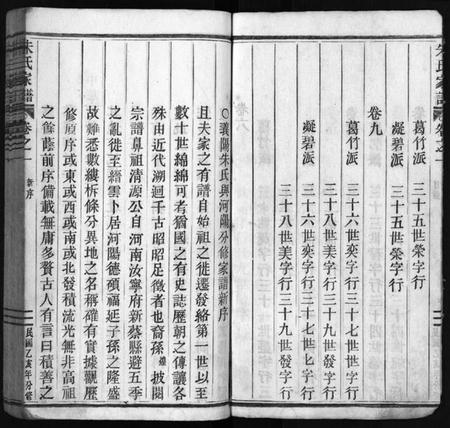 朱氏家譜 卷之一
葛竹派 三十五世榮字行
凝碧派 三十五世榮字行
卷九
葛竹派 三十六世奕字行 三十七世
三十八世美字行 三十九世發字行
凝碧派 三十六世奕字行 三十七世
三十八世美字行 三十九世發字行
朱氏家譜 卷之一 新序 民國乙亥年分修
○襄陽朱氏與河陽分修家譜新序
且夫家之有譜自始祖之徙遷發絡第一世以至
數十世綿綿可考猶國之有史誌歷朝之傳讓各
殊由近代溯迴千古昭昭足徵者也裔孫 披閱
宗譜鼻祖清源公自河南汝寧府新蔡縣避五季
之亂徙至縉雲卜居河陽德積福延子孫之隆盛
故難悉數縷柝條分異地之名稱確有實據觀歷
修原序或東或西或南或北發積流光無非高祖
之餘蔭前序備載無庸多贅古人有言曰積善之